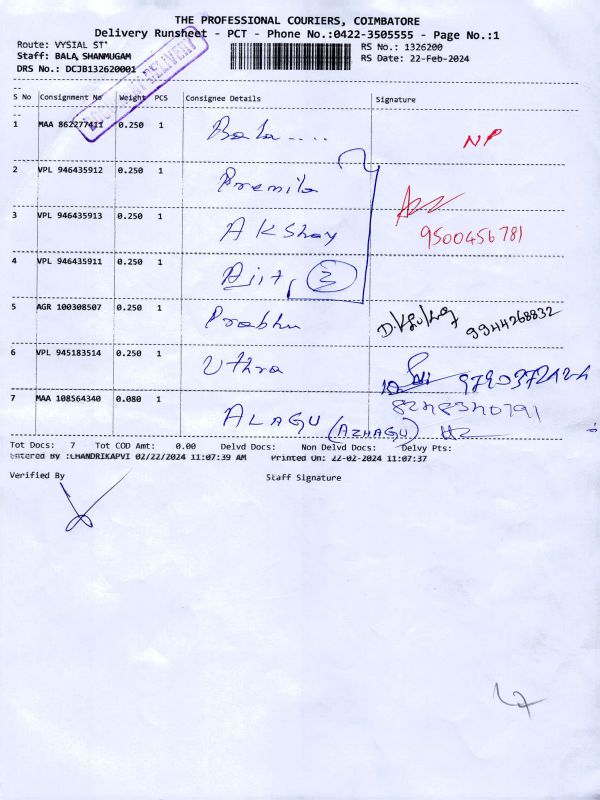 THE PROFESSIONAL COURIERS, COIMBATORE
Delivery Runsheet - PCT - Phone No.:0422-3505555 - Page No.:1
Route: VYSIAL ST'
RS No.: 1326200
Staff: BALA, SHANMUGAM
RS Date: 22-Feb-2024
DRS No.: DCJB132620001
S No Consignment No Weight PCS Consignee Details Signature
1 MAA 862277411 0.250 1 Bala.... NP
2 VPL 946435912 0.250 1 Premila
3 VPL 946435913 0.250 1 AKShay 9500456781
4 VPL 946435911 0.250 1 Ajit, 3
5 AGR 100308507 0.250 1 Prabhu 9944268832
6 VPL 945183514 0.250 1 Uthra
7 MAA 108564340 0.080 1 ALAGU (AZHAGU) 8248340791
Tot Docs: 7 Tot COD Amt: 0.00 Delvd Docs: Non Delvd Docs: Delvy Pts:
Entered By :CHANDRIKAPVI 02/22/2024 11:07:39 AM Printed On: 22-02-2024 11:07:37
Verified By Staff Signature